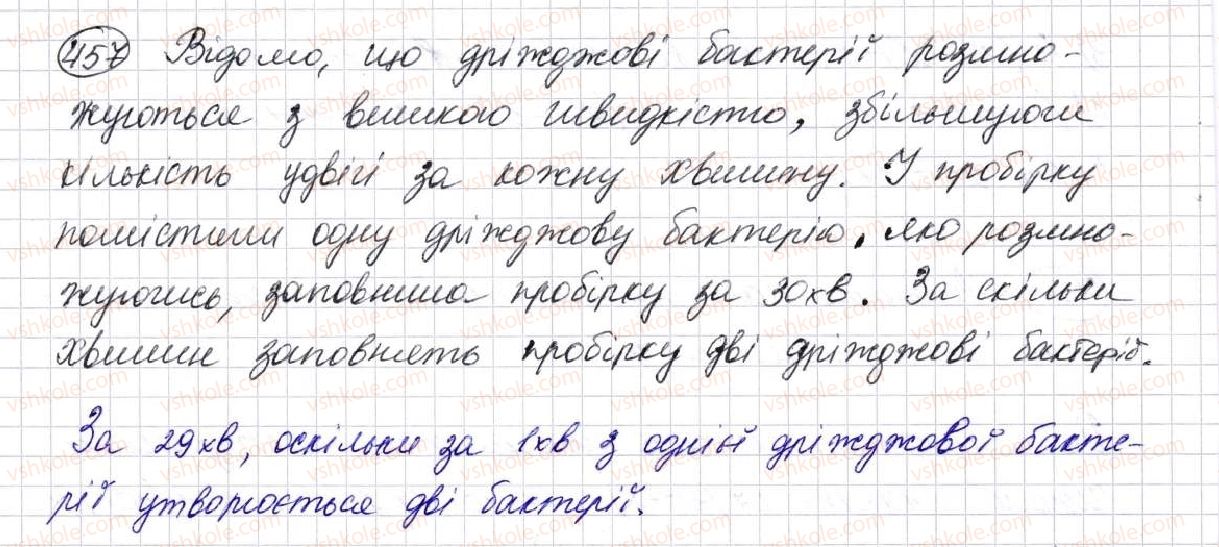 457 Відомо, що дріжджові бактерії розмно-
жуються з великою швидкістю, збільшуючи
кількість удвічі за кожну хвилину. У пробірку
помістили одну дріжджову бактерію, яка розмно-
жуючись, заповнила пробірку за 30хв. За скільки
хвилин заповнять пробірку дві дріжджові бактерії.
За 29хв, оскільки за 1хв з однієї дріжджової бакте-
рії утворюється дві бактерії.